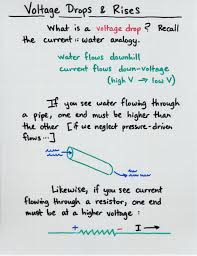 Voltage Drops & Rises
What is a voltage drop? Recall
the current :: water analogy.
water flows downhill
current flows down-voltage
(high V → low V)
If you see water flowing through
a pipe, one end must be higher than
the other [if we neglect pressure-driven
flows...]
Likewise, if you see current
flowing through a resistor, one end
must be at a higher voltage:
+ - I →